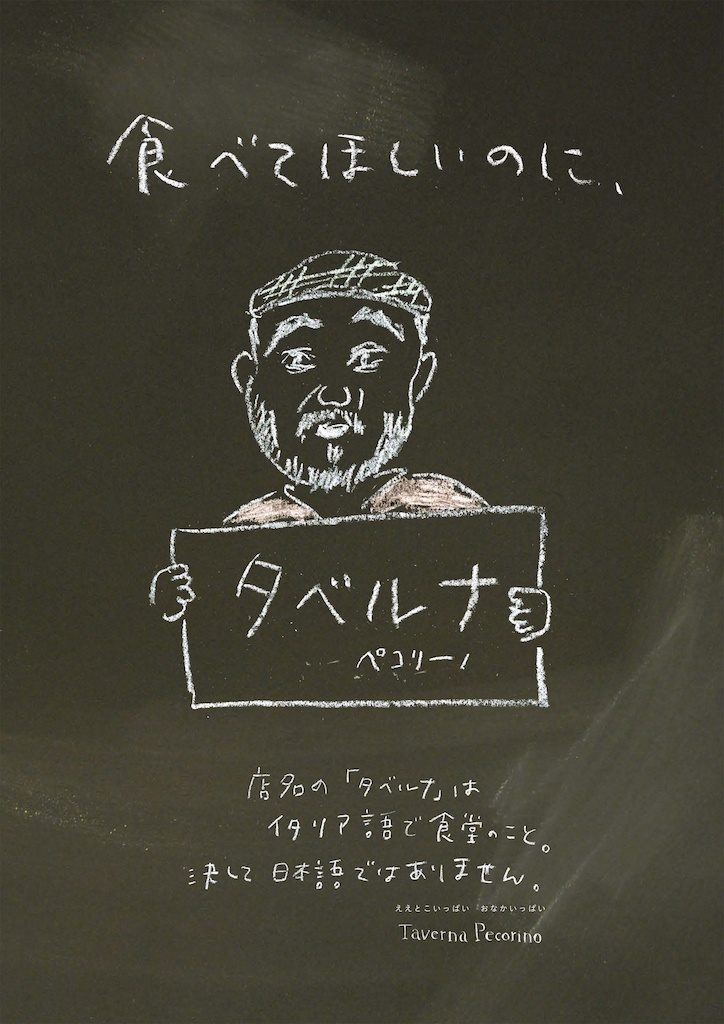 食べてほしいのに、
タベルナ
ペコリーノ
店名の「タベルナ」は
イタリア語で食堂のこと。
決して日本語ではありません。
ええとこいっぱい おなかいっぱい
Taverna Pecorino